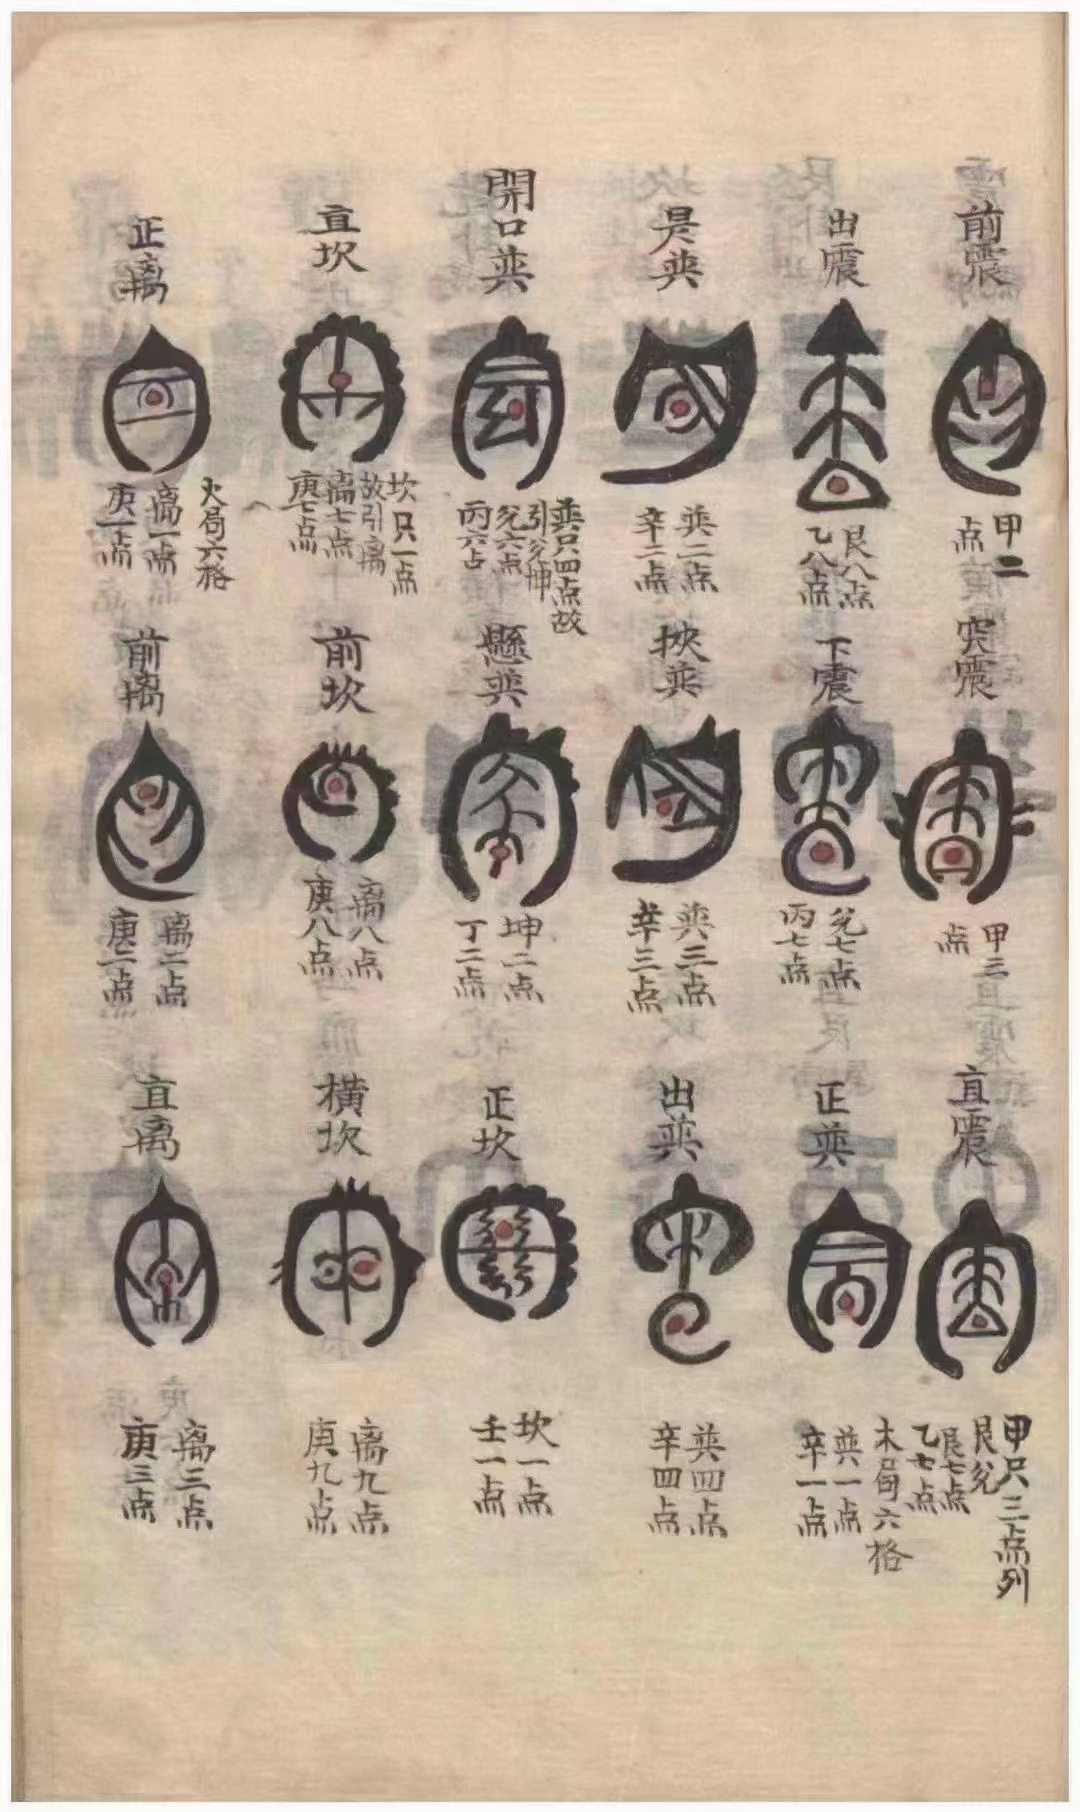 前震
甲二
点
突震
甲三
点
直震
甲只三点列
艮兊
艮七点
乙七点
出震
艮八点
乙八点
下震
兊七点
丙七点
正巽
木局六格
巽一点
辛一点
巽
巽二点
辛二点
挾巽
巽三点
辛三点
出巽
巽四点
辛四点
開口巽
巽只四点故
引兊坤
兊六点
丙六占
懸巽
坤二点
丁二点
正坎
坎一点
壬一点
直坎
坎只一点
故引离
离七点
庚七点
前坎
离八点
庚八点
橫坎
离九点
庚九点
正离
火局六格
离一点
庚一点
前离
离二点
庚二点
直离
离三点
庚三点